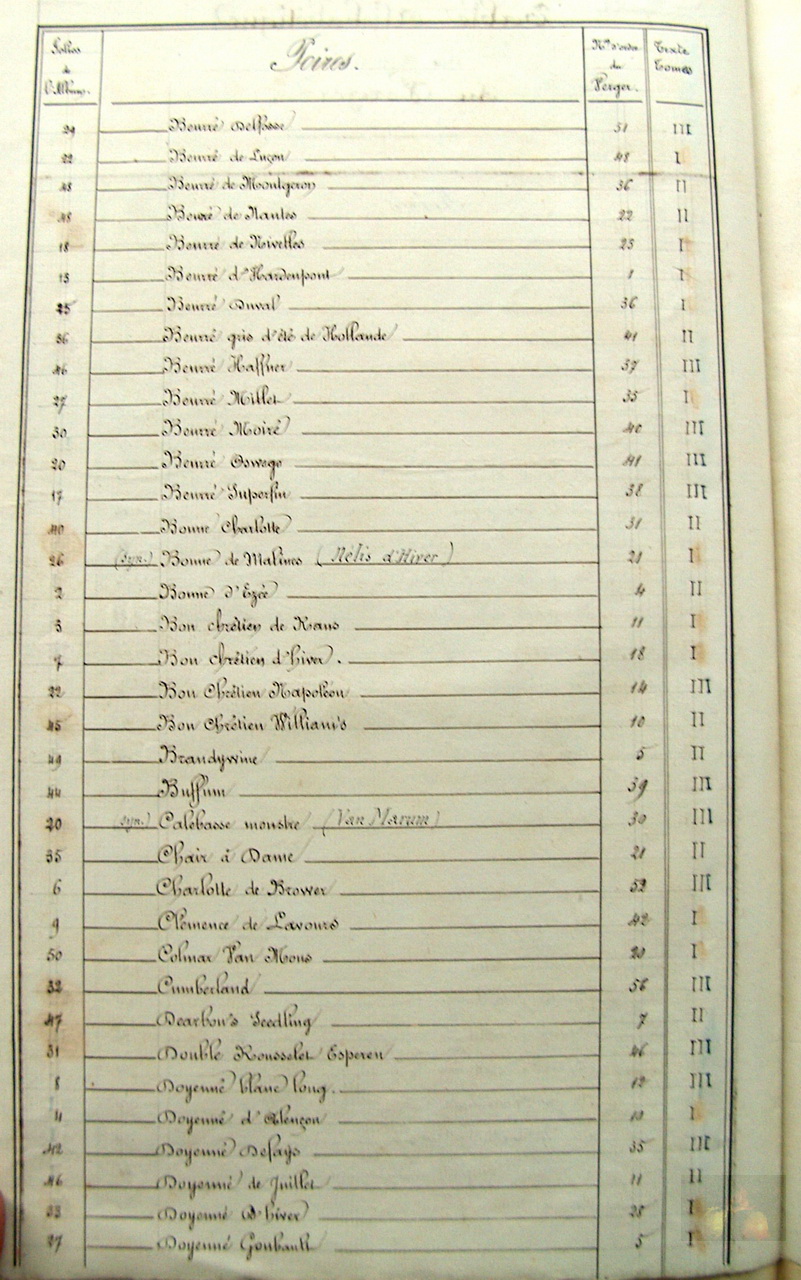 Folios de l'Album. Poires. Nos d'ordre du Verger. Texte Tomes
29 Beurré Delfosse 51 III
22 Beurré de Luçon 48 I
48 Beurré de Montgeron 36 II
48 Beurré de Nantes 22 II
18 Beurré de Nivelles 25 I
13 Beurré d'Hardenpont 1 I
25 Beurré Duval 36 I
36 Beurré gris d'été de Hollande 41 II
46 Beurré Haffner 37 III
27 Beurré Millet 35 I
30 Beurré Moiré 40 III
20 Beurré Oswego 41 III
17 Beurré Superfin 38 III
40 Bonne Charlotte 31 II
26 (syn.) Bonne de Malines (Nélis d'Hiver) 21 I
2 Bonne d'Ezée 4 II
3 Bon chrétien de Rans 11 I
7 Bon chrétien d'hiver. 18 I
22 Bon Chrétien Napoléon 14 III
45 Bon Chrétien William's 10 II
49 Brandywine 5 II
44 Buffum 39 III
20 (syn.) Calebasse monstre (Van Marum) 30 III
35 Chair à Dame 21 II
6 Charlotte de Brower 52 III
9 Clémence de Lavours 42 I
50 Colmar Van Mons 20 I
32 Cumberland 56 III
47 Dearbon's Seedling 7 II
31 Double Rousselet Esperen 46 III
8 Doyenné blanc long. 12 III
11 Doyenné d'Alençon 13 I
42 Doyenné Defays 35 III
46 Doyenné de Juillet 11 II
33 Doyenné d'hiver 25 I
27 Doyenné Goubault 5 I